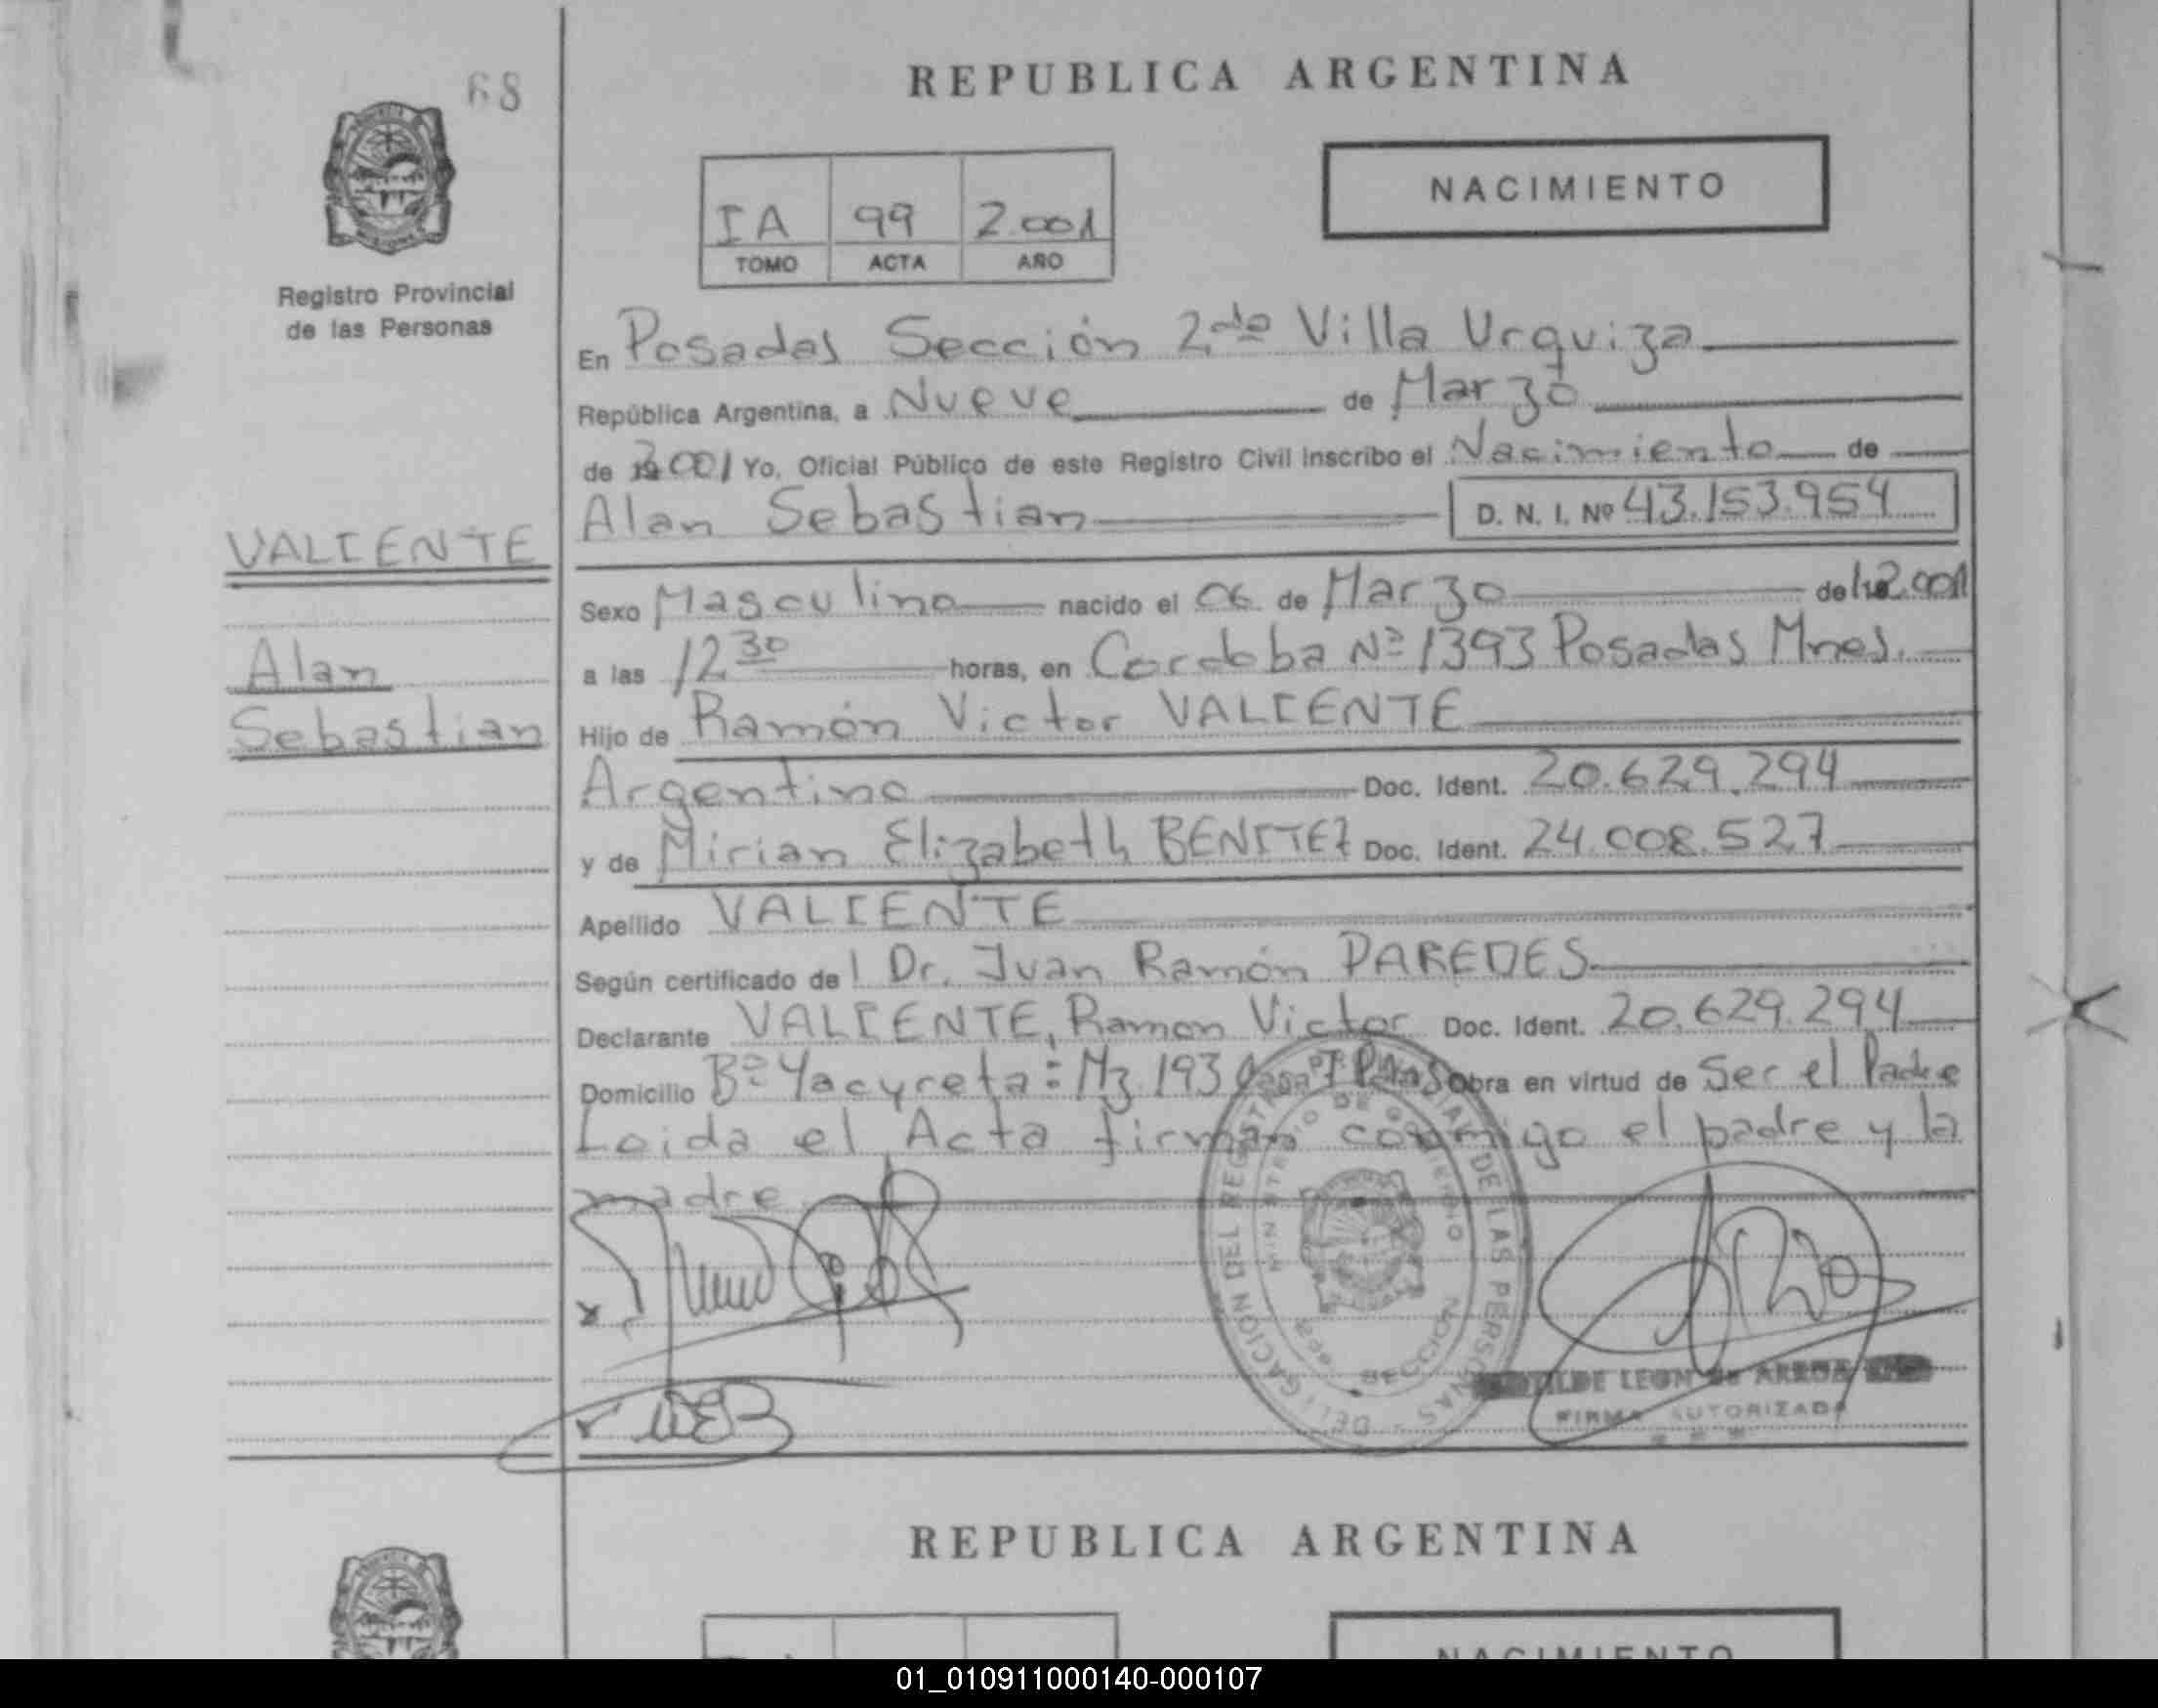 68
REPUBLICA ARGENTINA
NACIMIENTO
IA 99 2.001
TOMO ACTA AÑO
Registro Provincial
de las Personas
En Posadas Sección 2da Villa Urquiza
República Argentina, a Nueve de Marzo
de 2001 Yo, Oficial Público de este Registro Civil Inscribo el Nacimiento de
Alan Sebastian D. N. I. Nº 43.153.954
VALIENTE
Alan
Sebastian
Sexo Masculino nacido el 06 de Marzo de 2.001
a las 12 30 horas, en Cordoba Nº 1393 Posadas Mnes.
Hijo de Ramón Victor VALIENTE
Argentino Doc. Ident. 20.629.294
y de Mirian Elizabeth BENITEZ Doc. Ident. 24.008.527
Apellido VALIENTE
Según certificado del Dr. Juan Ramón PAREDES
Declarante VALIENTE, Ramon Victor Doc. Ident. 20.629.294
Domicilio Bº Yacyreta: Mz 193 Casa Obra en virtud de Ser el Padre
Leida el Acta firman conmigo el padre y la
madre
DELEGACION DEL REGISTRO DE LAS PERSONAS
MINISTERIO DE GOBIERNO
SECCION
LEON DE
FIRMA AUTORIZADA
REPUBLICA ARGENTINA
NACIMIENTO
01_010911000140-000107